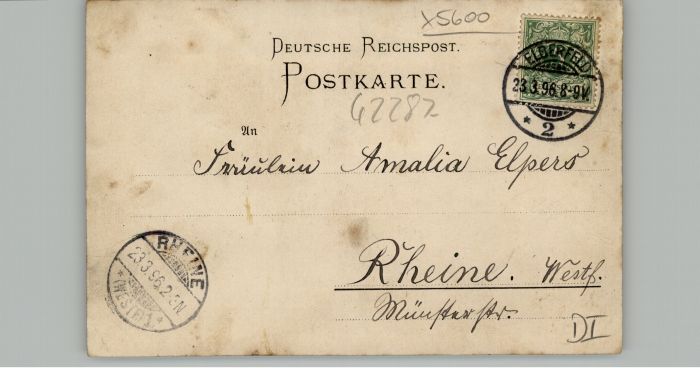 x5600
DEUTSCHE REICHSPOST.
POSTKARTE.
ELBERFELD
23.3.96.8-9V.
* 2 *
62282
An
Fräulein Amalia Elpers
RHEINE
23.3.96.2-3N
*(WESTF.)*
Rheine. Westf.
Münsterstr.
DI